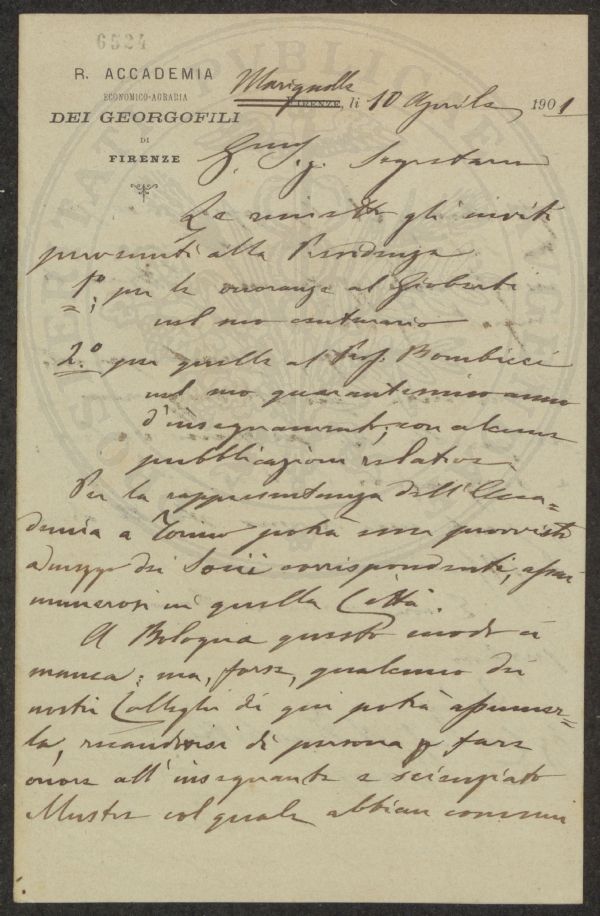 6524
R. ACCADEMIA
ECONOMICO-AGRARIA
DEI GEORGOFILI
DI
FIRENZE
Marignolle
FIRENZE, li 10 Aprile 1901
Sig. Segretario
Le rimetto gli inviti
pervenuti alla Presidenza
1º per le onoranze al Gioberti
nel suo centenario
2.º per quelle al Prof. Bombicci
nel suo quarantesimo anno
d'insegnamento, con alcune
pubblicazioni relative
Per la rappresentanza dell'Acca=
demia a Torino potrà esser provvisto
a mezzo dei Socii corrispondenti, assai
numerosi in quella Città.
A Bologna questo modo ci
manca; ma, forse, qualcuno dei
nostri Colleghi di qui potrà assumer=
la, recandovisi di persona fare
onore all'insegnante e scienziato
Mustre col quale abbiam comuni